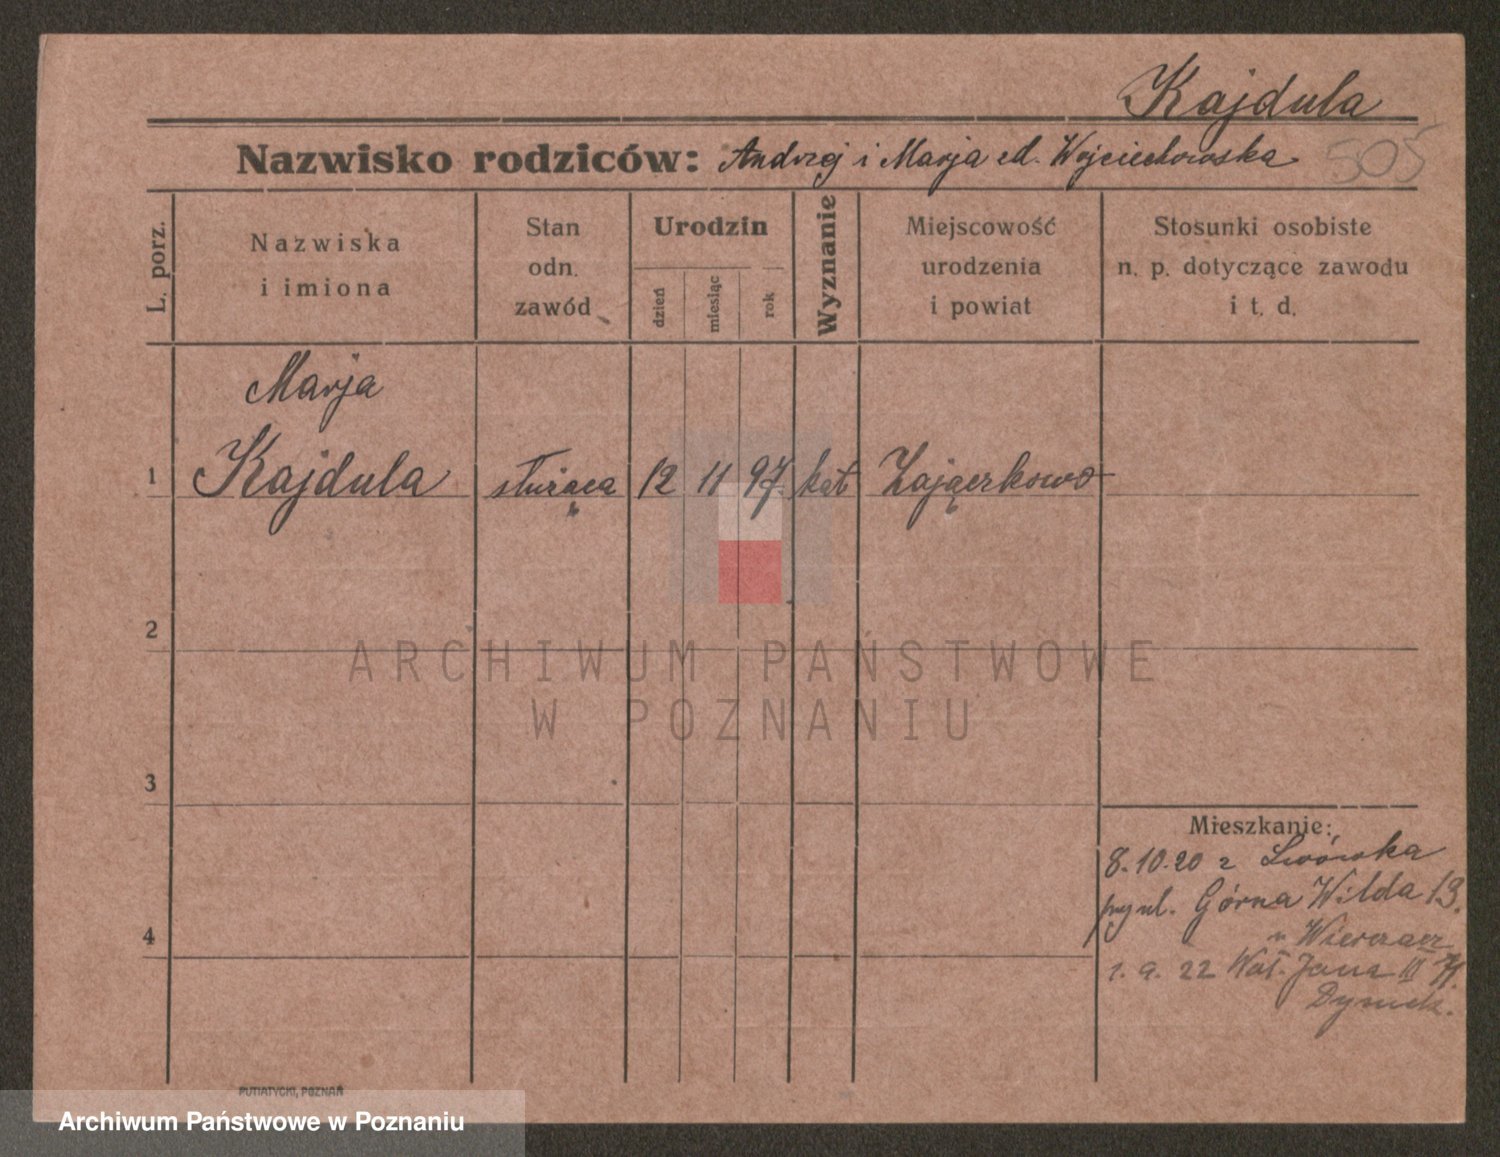 Kajdula
Nazwisko rodziców: Andrzej i Marja Wojciechowska
505
L. porz.
Nazwiska
i imiona
Stan
odn.
zawód
Urodzin
dzień
miesiąc
rok
Wyznanie
Miejscowość
urodzenia
i powiat
Stosunki osobiste
n. p. dotyczące zawodu
i t. d.
Marja
1 Kajdula służąca 12 11 97. kat Zajączkowo
2
3
4
Mieszkanie:
8.10.20 z Lwówka
Górna Wilda 13.
1. 9. 22 Jana III
PUTIATYCKI, POZNAŃ
ARCHIWUM PAŃSTWOWE
W POZNANIU
Archiwum Państwowe w Poznaniu